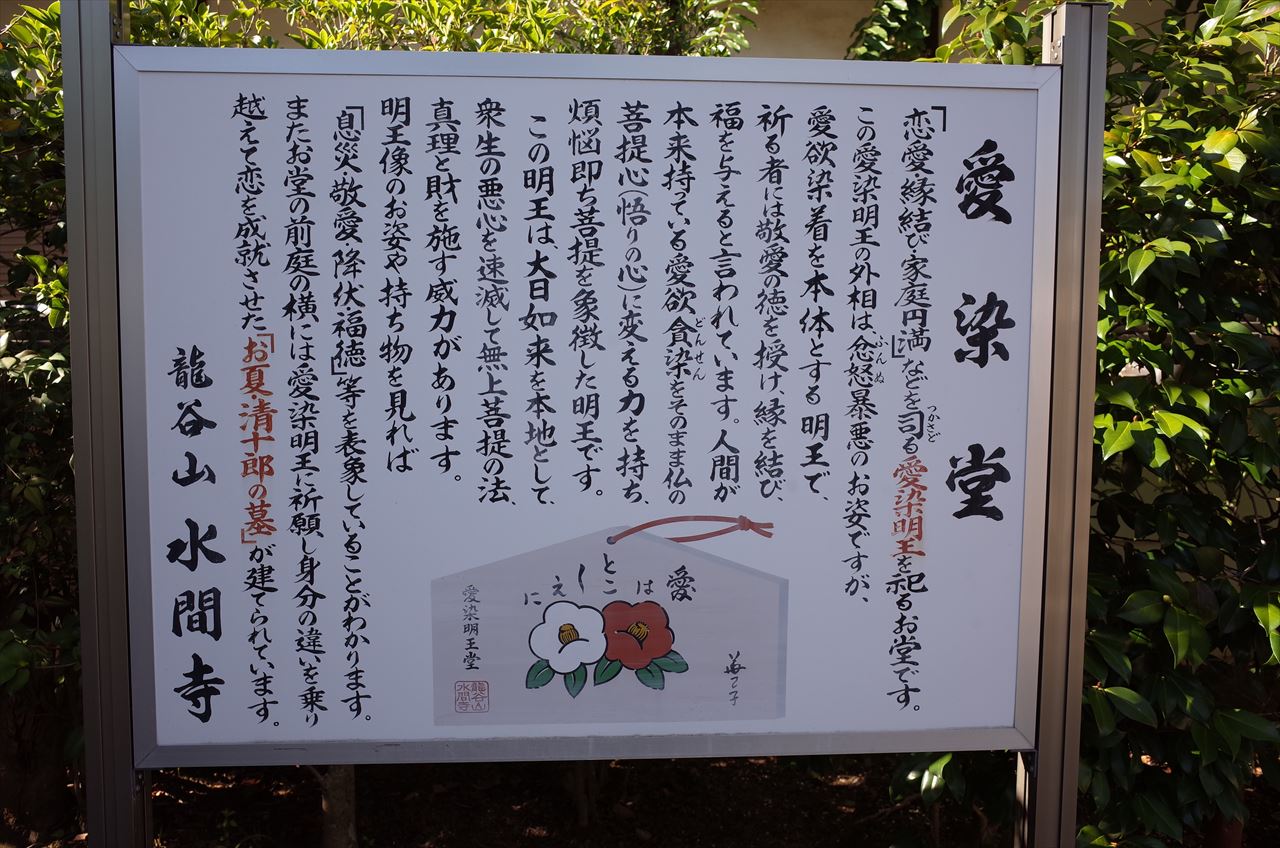 愛染堂
「恋愛・縁結び・家庭円満」などを司る愛染明王を祀るお堂です。
つかさど
この愛染明王の外相は、忿怒暴悪のお姿ですが、
ふんぬ
愛欲染着を本体とする明王で、
祈る者には敬愛の徳を授け縁を結び、
福を与えると言われています。人間が
本来持っている愛欲貪染をそのまま仏の
どんせん
菩提心(悟りの心)に変える力を持ち、
煩悩即ち菩提を象徴した明王です。
この明王は、大日如来を本地として、
衆生の悪心を速滅して無上菩提の法、
真理と財を施す威力があります。
明王像のお姿や持ち物を見れば
「息災・敬愛・降伏・福徳」等を表象していることがわかります。
またお堂の前庭の横には愛染明王に祈願し身分の違いを乗り
越えて恋を成就させた「お夏・清十郎の墓」が建てられています。
龍谷山水間寺
愛
は
とこ
しえ
に
愛染明王堂
龍谷山
水間寺